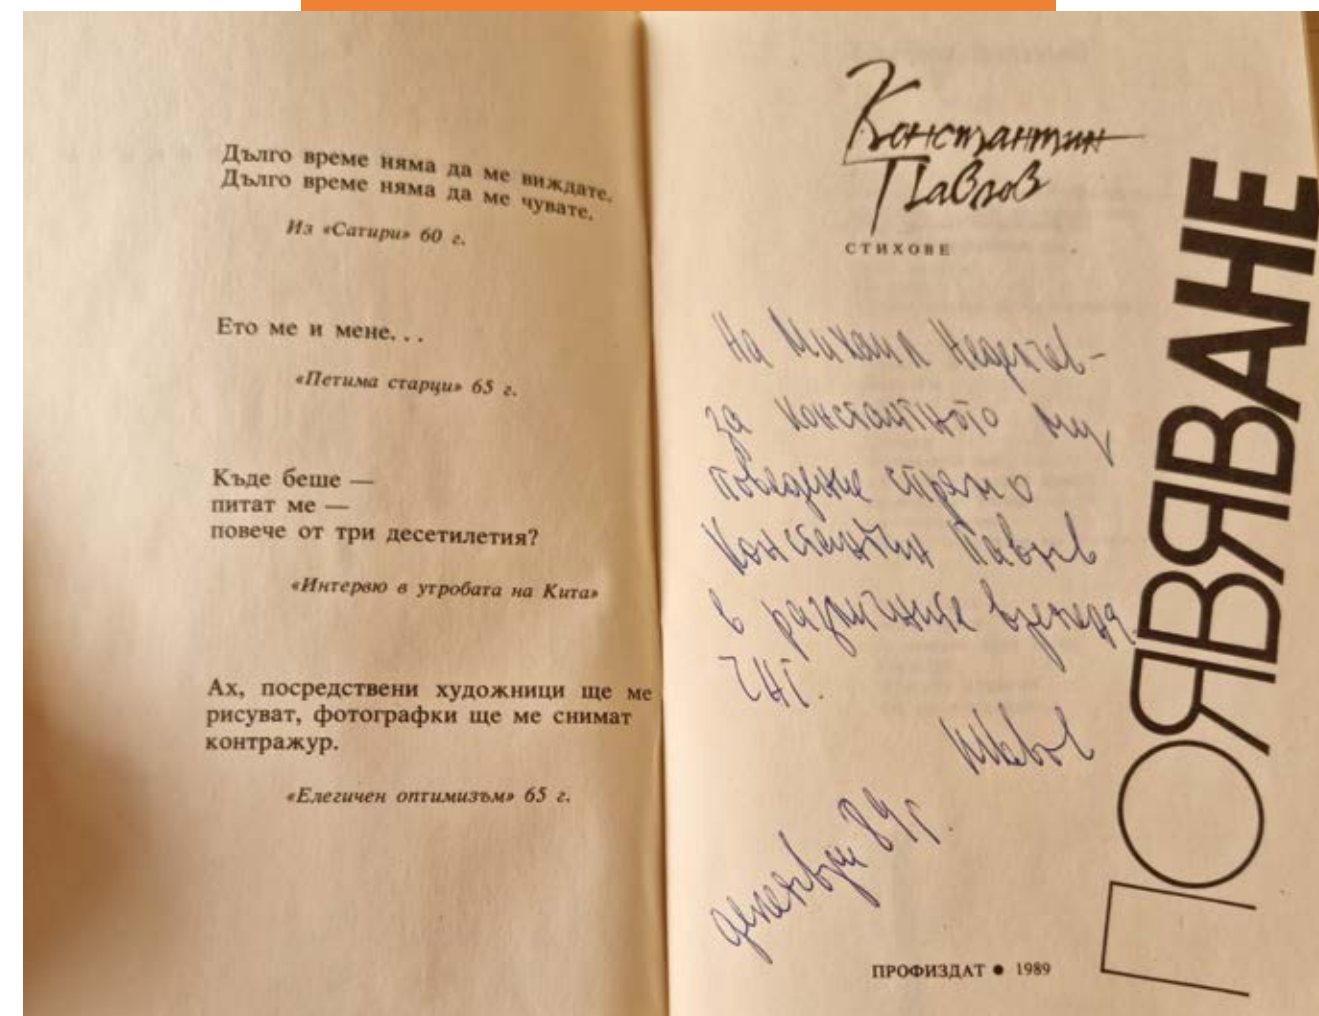 Дълго време няма да ме виждате.
Дълго време няма да ме чувате.
Из «Сатири» 60 г.
Ето ме и мене. . .
«Петима старци» 65 г.
Къде беше —
питат ме —
повече от три десетилетия?
«Интервю в утробата на Кита»
Ах, посредствени художници ще ме
рисуват, фотографки ще ме снимат
контражур.
«Елегичен оптимизъм» 65 г.
Константин
Павлов
СТИХОВЕ
ПОЯВЯВАНЕ
На Михаил Неделчев –
за константното му
поведение спрямо
Константин Павлов
в различните времена.
ЧНГ.
КПавлов
декември 89 г.
ПРОФИЗДАТ ● 1989